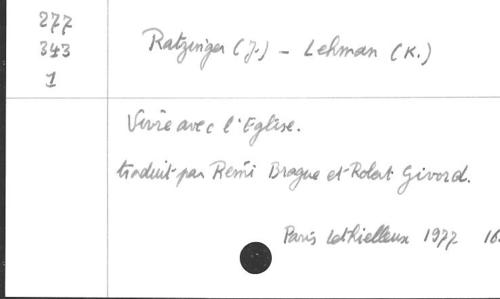 277
343
1
Ratzinger (J.) – Lehman (K.)
Vivre avec l'Eglise.
traduit par Rémi Brague et Robert Givord.
Paris Lethielleux 1977 16